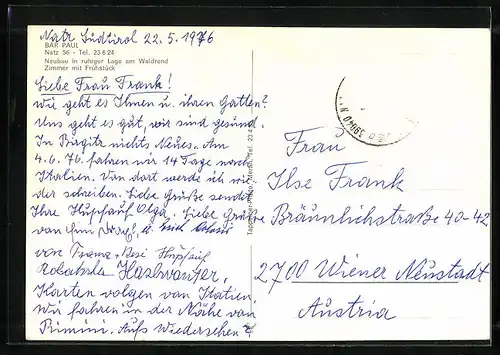 Natz Südtirol 22.5.1976
BAR PAUL
Natz 56 - Tel. 23 6 24
Neubau in ruhiger Lage am Waldrand
Zimmer mit Frühstück
Liebe Frau Frank!
Wie geht es Ihnen u. ihren Gatten?
Uns geht es gut, wir sind gesund.
In Birgitz nichts Neues. Am
4.6.76. fahren wir 14 Tage nach
Italien. Von dort werde ich wie
der schreiben. Liebe Grüße sendet
Ihre Hupfauf Olga. Liebe Grüße
von
von Hupfauf
Karten volgen von Italien
Wir fahren in der Nähe von
Rimini. Aufs Wiedersehen
39040
Frau
Ilse Frank
Bräunlichstraße 40-42
2700 Wiener Neustadt
Austria